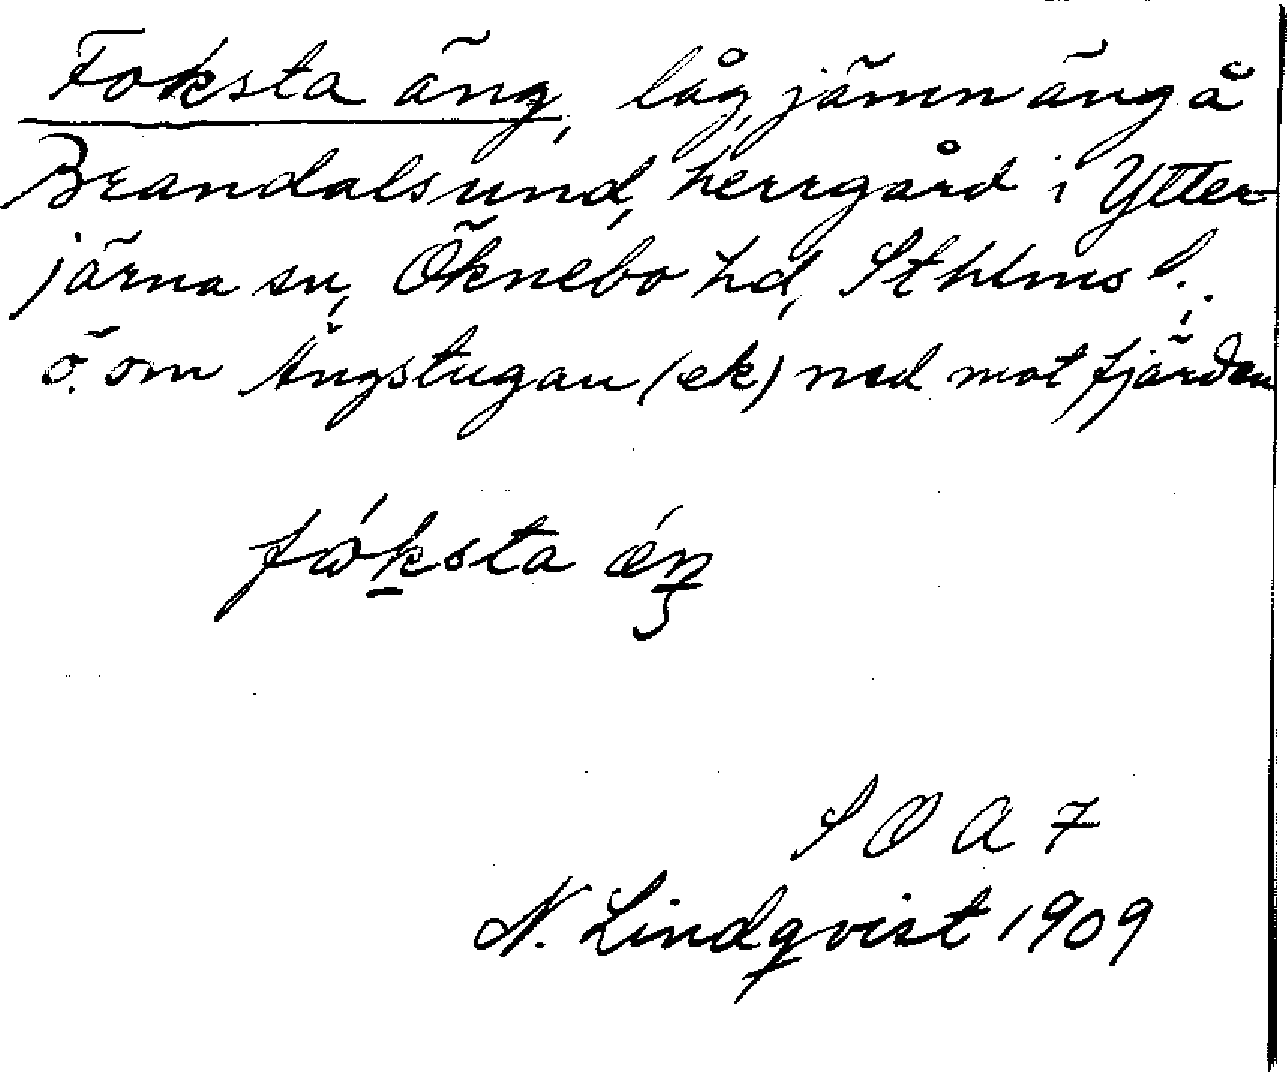 Foksta äng, låg, jämn äng å
Brandalsund, herrgård i Ytter-
järna sn, Öknebo hd, Sthlms l.;
ö. om Ängstugan (ek) ned mot fjärden
fωksta æŋ
S O A 7
N. Lindqvist 1909